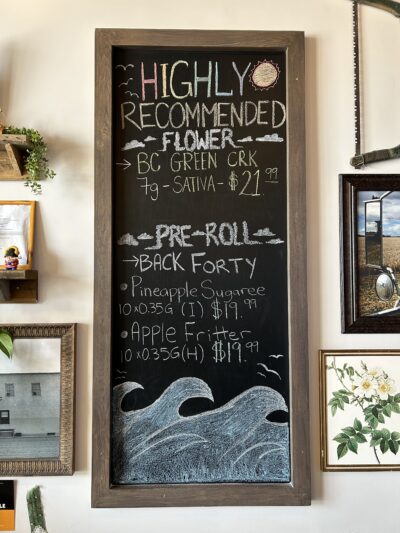 HIGHLY
RECOMMENDED
FLOWER
→ BC GREEN CRK
7g - SATIVA - $21.99
PRE-ROLL
→ BACK FORTY
• Pineapple Sugaree
10x0.35G (I) $19.99
• Apple Fritter
10x0.35G (H) $19.99